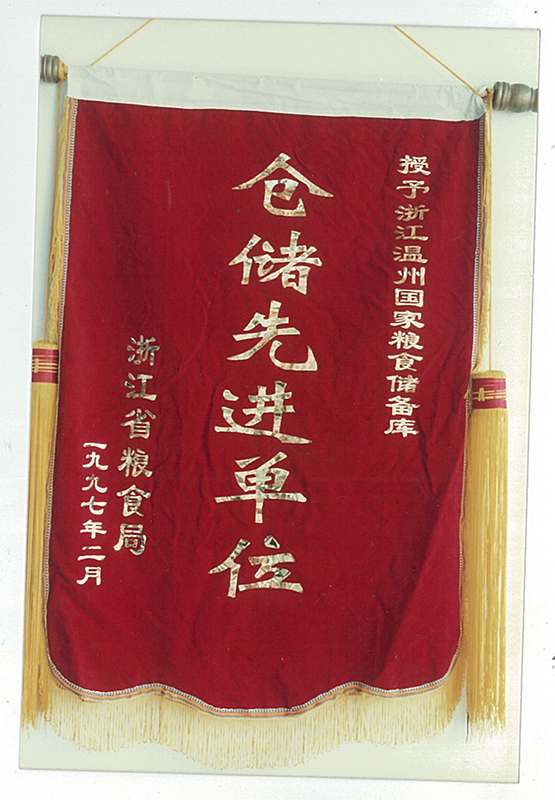 授予浙江温州国家粮食储备库
仓储先进单位
浙江省粮食局
一九九七年二月